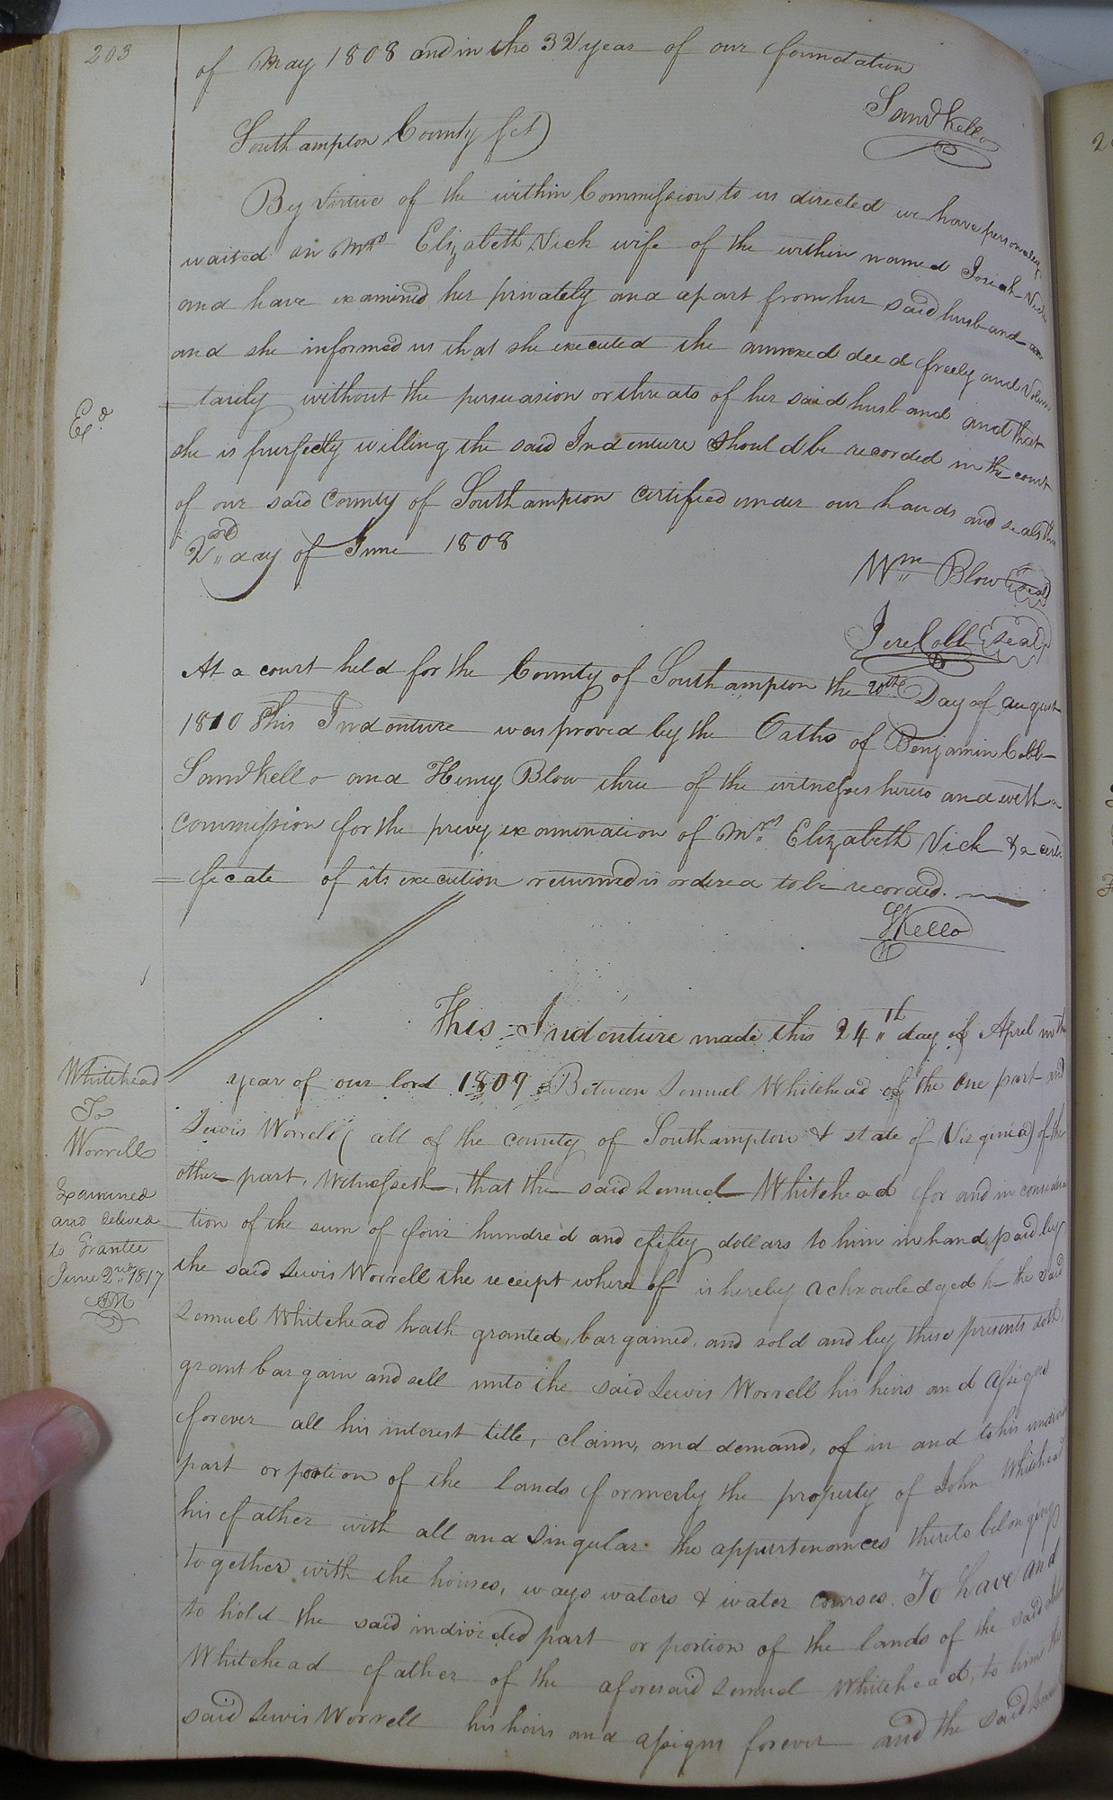 203
of May 1808 and in the 32 year of our foundation
Saml Kello
Southampton County Sct)
By virtue of the within Commission to us directed we have personally
waited on Mrs Elizabeth Vick wife of the within named Josiah Vick
and have examined her privately and apart from her said husband
and she informed us that she executed the annexed deed freely and Volun
=tarily without the persuasion or threats of her said husband and that
Exd
she is purfectly willing the said Indenture should be recorded in the court
of our said County of Southampton certified under our hands and seals this
2nd day of June 1808
Wm Blow (seal)
Jere Cobb (seal)
At a court held for the County of Southampton the 20th Day of august
1810 This Indenture was proved by the Oaths of Benjamin Cobb
Saml Kello and Henry Blow three of the witnesses hereto and with a
Commission for the privy examination of Mrs Elizabeth Vick & a certi
=ficate of its execution returned is ordered to be recorded.
SKello
This Indenture made this 24th day of April in the
Whitehead
To
Worrell
Examined
and delived
to Grantee
June 2nd 1817
year of our lord 1809 Between Lemuel Whitehead of the one part and
Lewis Worrell (all of the county of Southampton & state of Virginia) of the
other part, Witnesseth, that the said Lemuel Whitehead for and in considera
tion of the sum of four hundred and fifty dollars to him in hand paid by
the said Lewis Worrell the receipt where of is hereby acknowledged h the said
Lemuel Whitehead hath granted, bargained, and sold and by these presents doth
grant bargain and sell unto the said Lewis Worrell his heirs and assigns
forever all his interest title, claim, and demand, of in and to his undivided
part or portion of the lands formerly the property of John Whitehead
his father with all and singular the appurtenances thereto belonging
together with the houses, ways waters & water courses. To have and
to hold the said individed part or portion of the lands of the said John
Whitehead father of the aforesaid Lemuel Whitehead, to him the
said Lewis Worrell his heirs and assigns forever and the said Lemuel